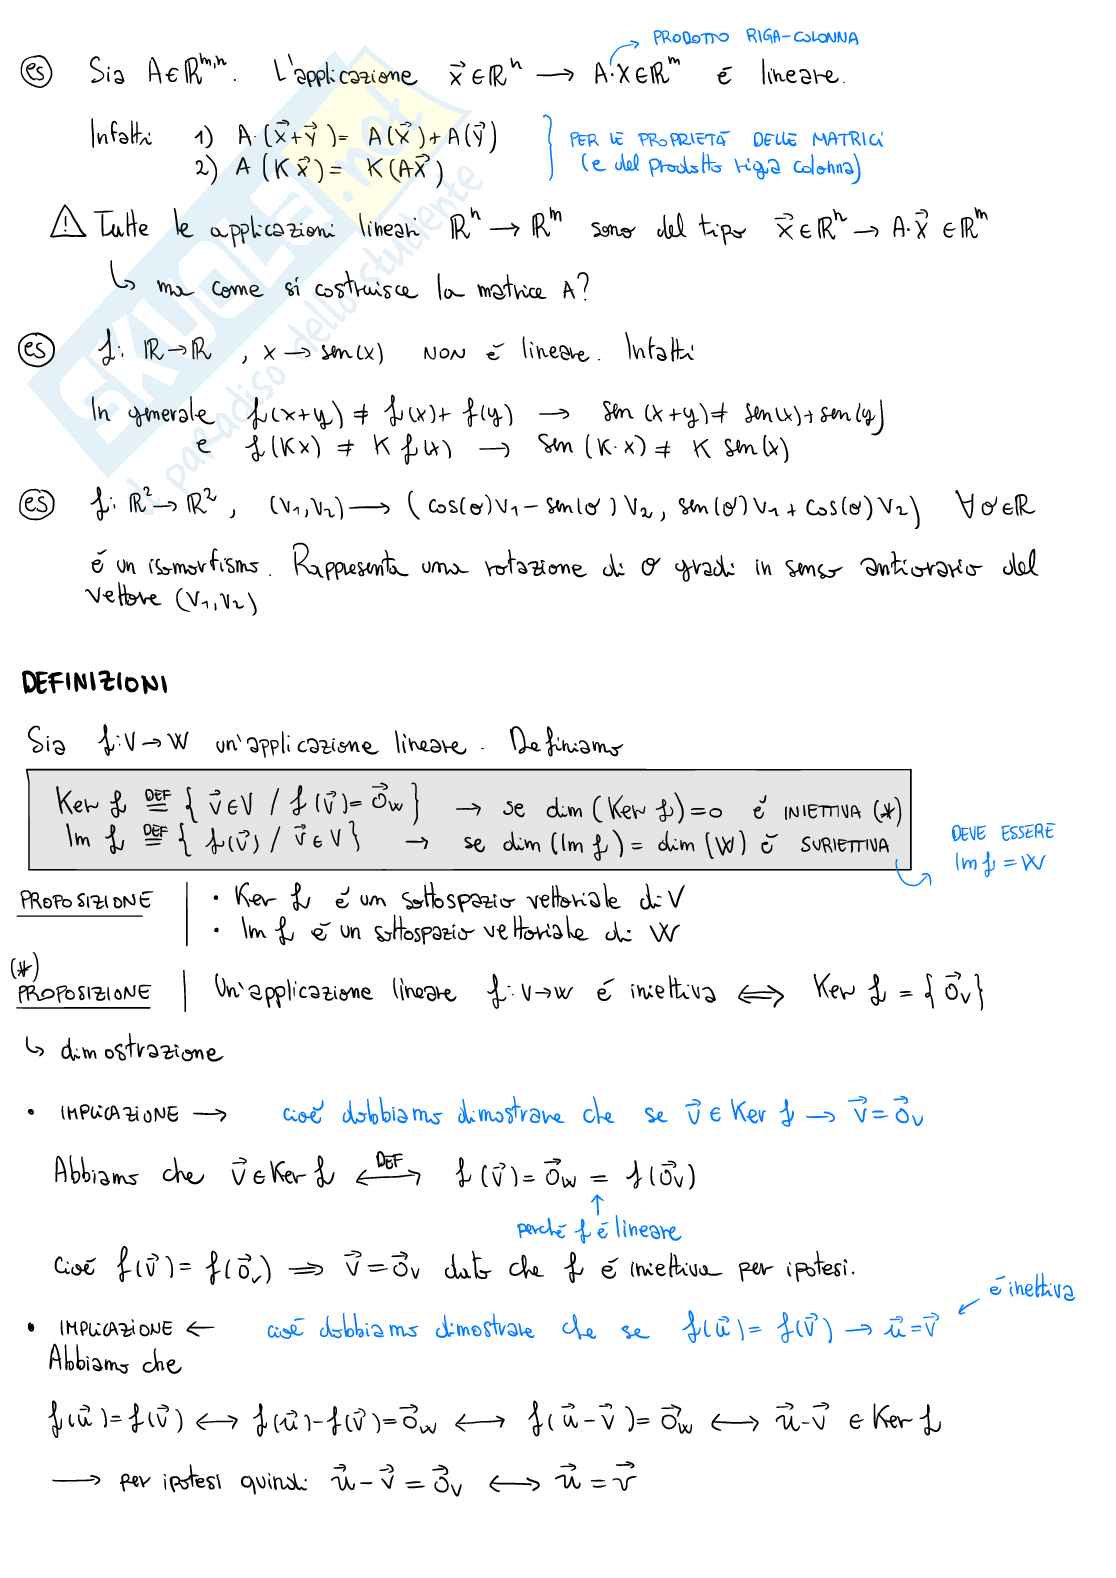 PRODOTTO RIGA-COLONNA
es Sia A∈ℝ^m,n. L'applicazione x⃗∈ℝ^n → A·X∈ℝ^m é lineare.
Infatti 1) A·(x⃗+y⃗)= A(x⃗)+A(y⃗) } PER LE PROPRIETÁ DELLE MATRICI
2) A (K x⃗)= K(Ax⃗) (e del prodotto riga colonna)
⚠ Tutte le applicazioni lineari ℝ^n → ℝ^m sono del tipo x⃗∈ℝ^n → A·x⃗ ∈ℝ^m
↳ ma come si costruisce la matrice A?
es f: ℝ→ℝ , x → sen(x) NON é lineare. Infatti
In generale f(x+y) ≠ f(x)+ f(y) → sen (x+y) ≠ sen(x)+sen(y)
e f(Kx) ≠ K f(x) → sen (K·x) ≠ K sen(x)
es f: ℝ²→ℝ² , (v₁,v₂) → (cos(σ)v₁-sen(σ)v₂, sen(σ)v₁+cos(σ)v₂) ∀σ∈ℝ
é un isomorfismo. Rappresenta una rotazione di σ gradi in senso antiorario del
vettore (v₁,v₂)
DEFINIZIONI
Sia f:V→W un'applicazione lineare. Definiamo
Ker f ≝ { v⃗∈V / f(v⃗)= 0⃗_W } → se dim (Ker f)=0 é INIETTIVA (*)
Im f ≝ { f(v⃗) / v⃗∈V } → se dim(Im f) = dim (W) é SURIETTIVA
DEVE ESSERE
Im f = W
PROPOSIZIONE | • Ker f é un sottospazio vettoriale di V
• Im f é un sottospazio vettoriale di W
(*)
PROPOSIZIONE | Un'applicazione lineare f:V→W é iniettiva ⟺ Ker f = {0⃗_V}
↳ dimostrazione
• IMPLICAZIONE → cioé dobbiamo dimostrare che se v⃗∈Ker f → v⃗=0⃗_V
Abbiamo che v⃗∈Ker f ⟷^DEF f(v⃗)=0⃗_W = f(0⃗_V)
↑
perché f é lineare
Cioé f(v⃗)= f(0⃗_V) ⟹ v⃗=0⃗_V dato che f é iniettiva per ipotesi.
é iniettiva
• IMPLICAZIONE ← cioé dobbiamo dimostrare che se f(u⃗)= f(v⃗) → u⃗=v⃗
Abbiamo che
f(u⃗)=f(v⃗) ⟷ f(u⃗)-f(v⃗)=0⃗_W ⟷ f(u⃗-v⃗)=0⃗_W ⟷ u⃗-v⃗ ∈ Ker f
→ per ipotesi quindi u⃗-v⃗=0⃗_V ⟷ u⃗=v⃗
SKUOLA.net
il paradiso dello studente